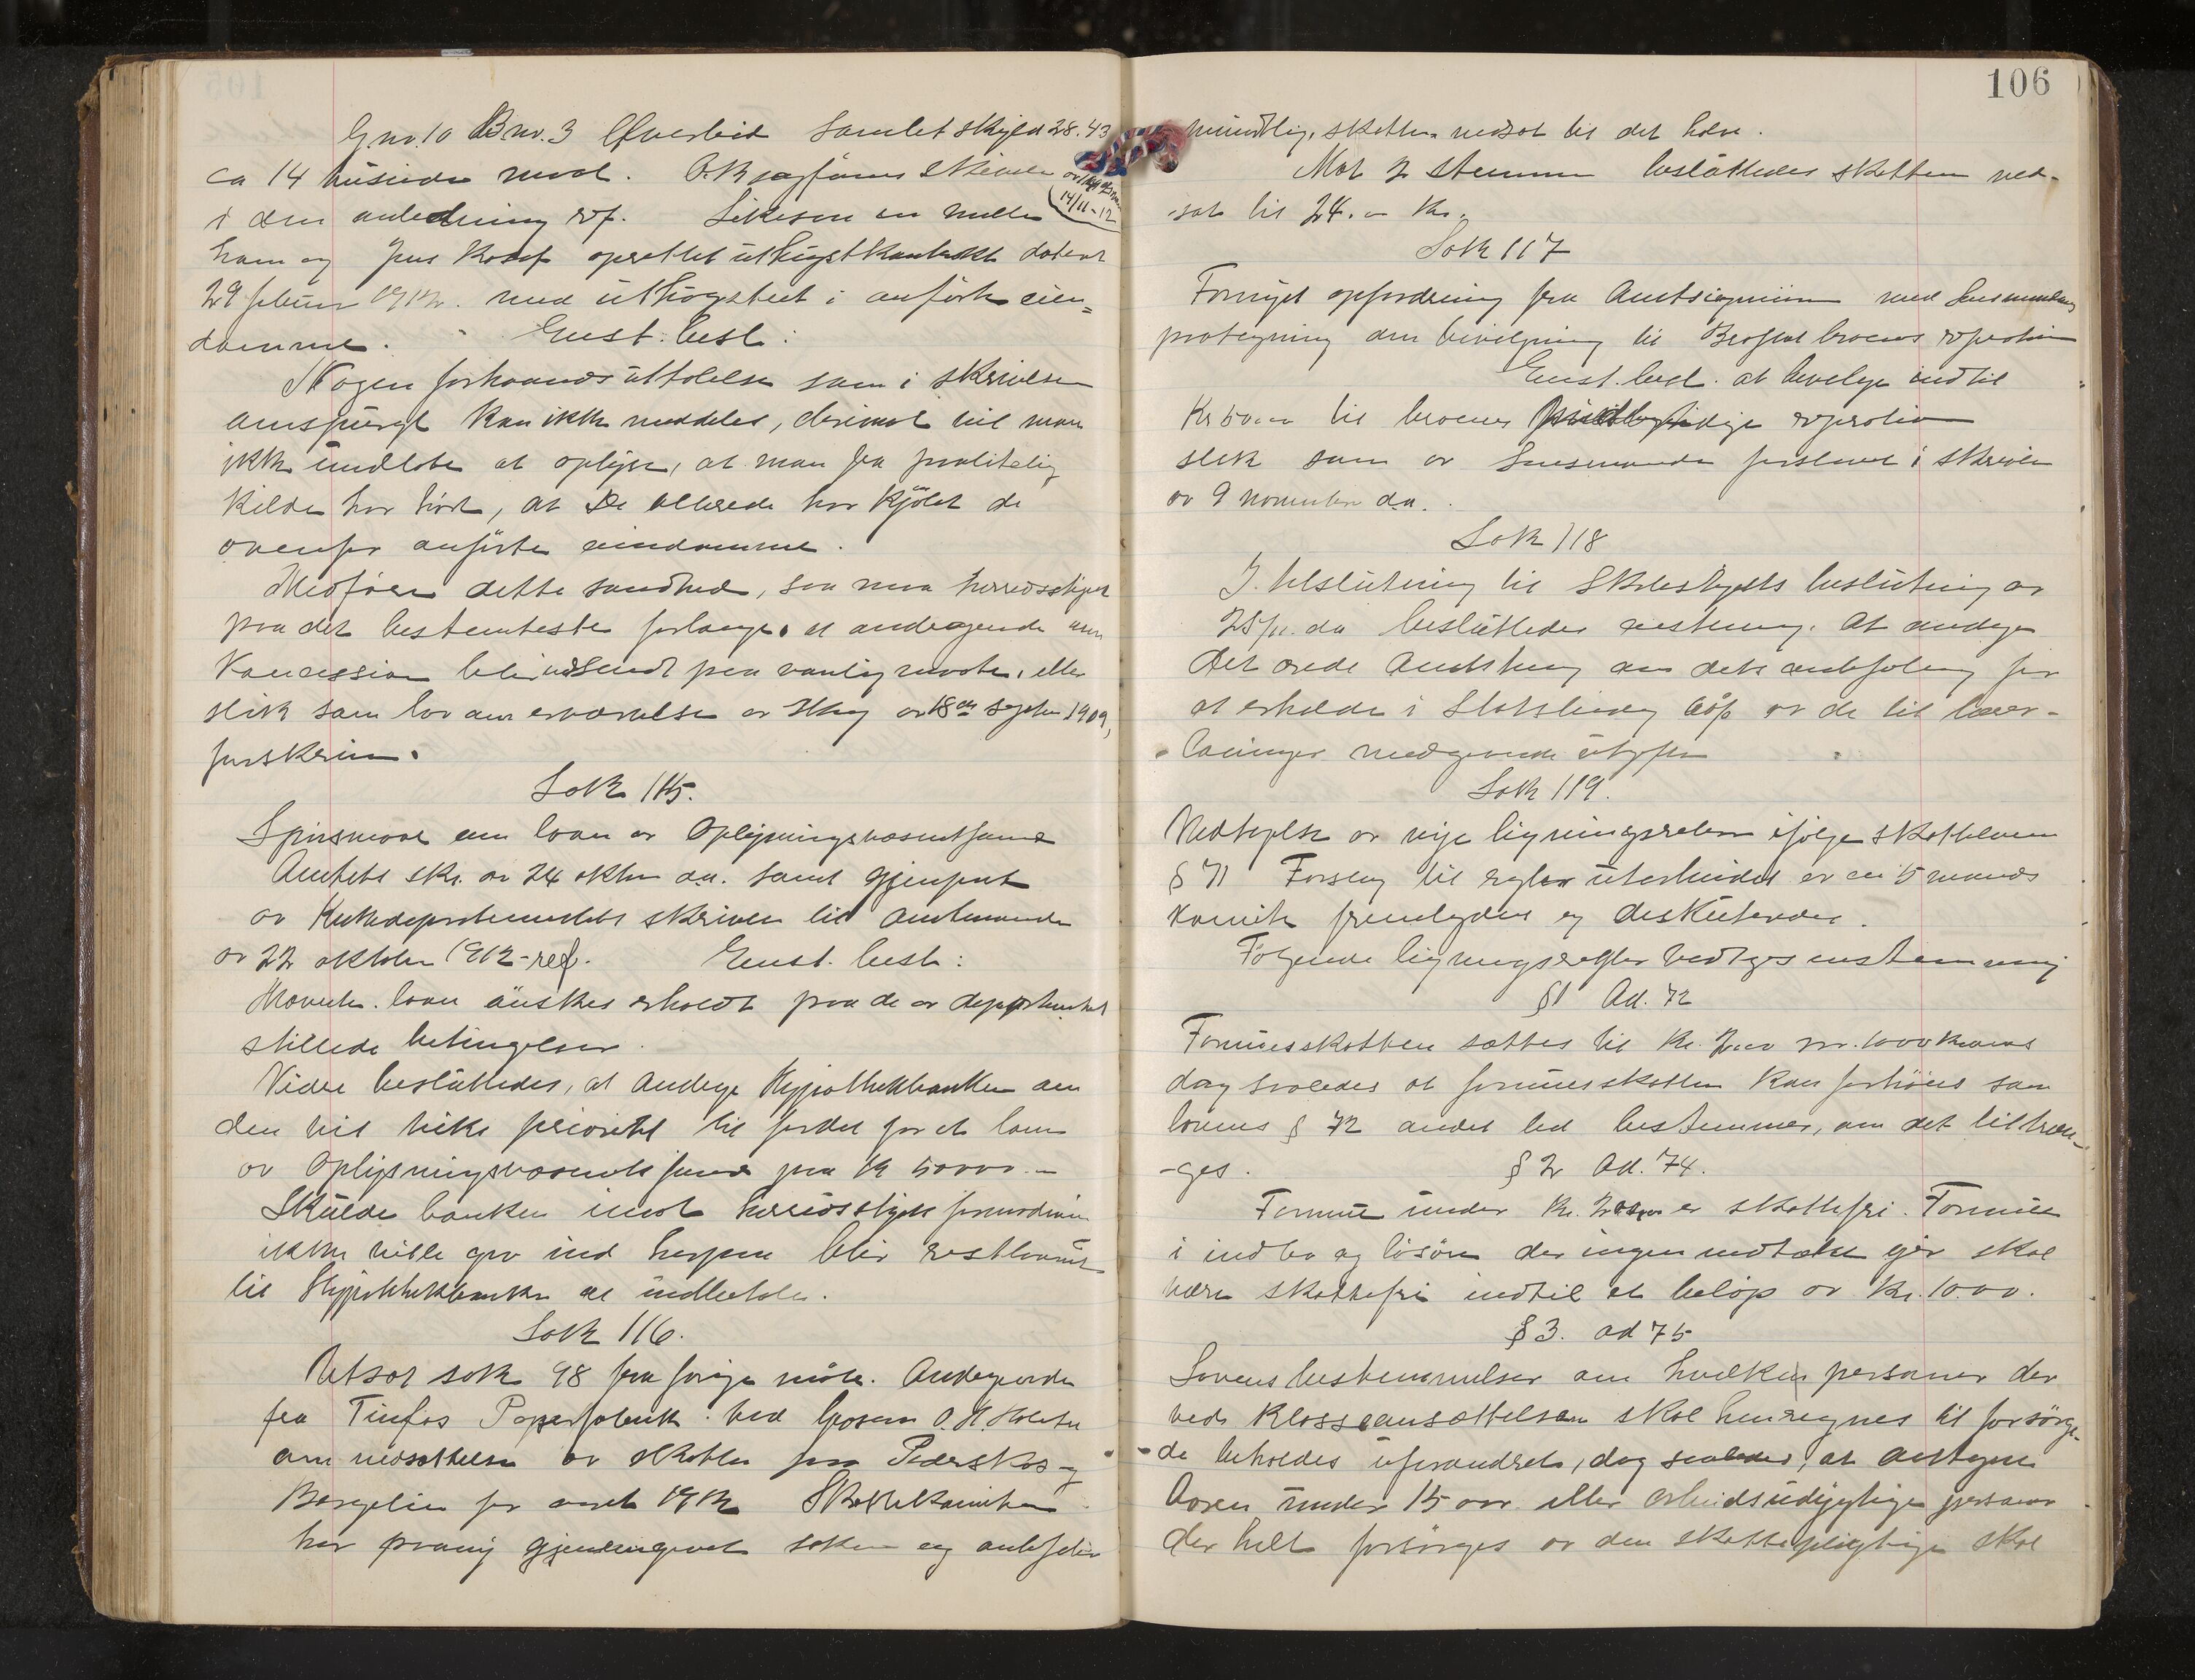 Gnr. 10 Bnr. 3 Øverbø Samlet skyld 28.43
ca 14 tusinde maal. O.R. sagfører Skieveland av
14/11-12
i den anledning ref. Likesom en mellem
ham og Jens Kosaf oprettet uthugstkontrakt datert
29 februar 1912. med uthogstret i anførte eien=
domme. Enst. besl:
Nogen forhaandsuttalelse som i skrivelsen
omspurgt kan ikke meddeles, derimot vil man
ikke undlate at oplyse, at man fra paalitelig
kilde har hørt, at De allerede har kjøbt de
ovenfor anførte eiendomme.
Medfører dette sandhed, saa maa herredsstyret
paa det bestemteste forlange, at andragende om
Koncession blir indsendt paa vanlig maate, eller
slik som lov om erværvelse av skog av 18de septbr 1909,
forskriver.
Sak 115.
Spørsmaal om laan av Oplysningsvæsenets fond
Amtets skr. av 24 oktbr d.a. samt gjenpart
av Kirkedepartementets skrivelse til Amtmanden
av 22 oktober 1912 - ref. Enst. besl:
Omhandlede laan ønskes erholdt paa de av departementet
stillede betingelser.
Videre besluttedes, at andrage Hypothekbanken om
den vil vike prioritet til fordel for et laan
av Oplysningsvæsenets fond paa kr 5000.-
Skulde banken imot herredsstyrets formodning
ikke ville gaa ind herpaa blir restlaanet
til Hypothekbanken at indbetale.
Sak 116.
Utsat sak 98 fra forrige møte. Andragende
fra Tinfos Papirfabrik ved Grosserer O. H. Holta
om nedsættelse av skatten paa Pederskas og
Børgelien for aaret 1912 Skattekomiteen
har paany gjennemgaaet saken og anbefaler
106
skatten nedsat til det halve.
Mot 2 stemmer besluttedes skatten ned-
sat til 24.- kr.
Sak 117
Fornyet opfordring fra Amtsingeniøren med Lensmandens
paategning om bevilgning til broens reparation
Enst. besl. at bevilge indtil
Kr 50.- til broens reparation
slik som av Lensmanden foreslaaet i skrivelse
av 9 november d.a.
Sak 118
I tilslutning til Skolestyrets beslutning av
25/11. da besluttedes enstemmig at andrage
det ærede Amtsting om dets anbefaling for
at erholde i Statsbidrag av de til lærer-
boliger medgaaende utgifter
Sak 119.
Vedtagelse av nye ligningsregler ifølge skatteloven
§ 71 Forslag til regler utarbeidet av en 5 mands
komite fremlagdes og diskutertes.
Følgende ligningsregler vedtages enstemmig
§ 1 Ad. 72
Formuesskatten sættes til kr. 2.00 pr. 1000 kroner
dog saaledes at formuesskatten kan forhøies som
lovens § 72 andet led bestemmer, om det tiltræn-
-ges. § 2 Ad. 74.
Formue under kr. er skattefri. Formue
i indbo og løsøre der ingen indtækt gir skal
være skattefri indtil et beløp av kr. 1000.
§ 3. ad 75
Lovens bestemmelser om hvilke personer der
ved klasseansættelsen skal henregnes til forsørge-
de beholdes uforandret, dog saaledes, at
under 15 aar eller arbeidsudygtige personer
der helt forsørges av den skattepligtige skal